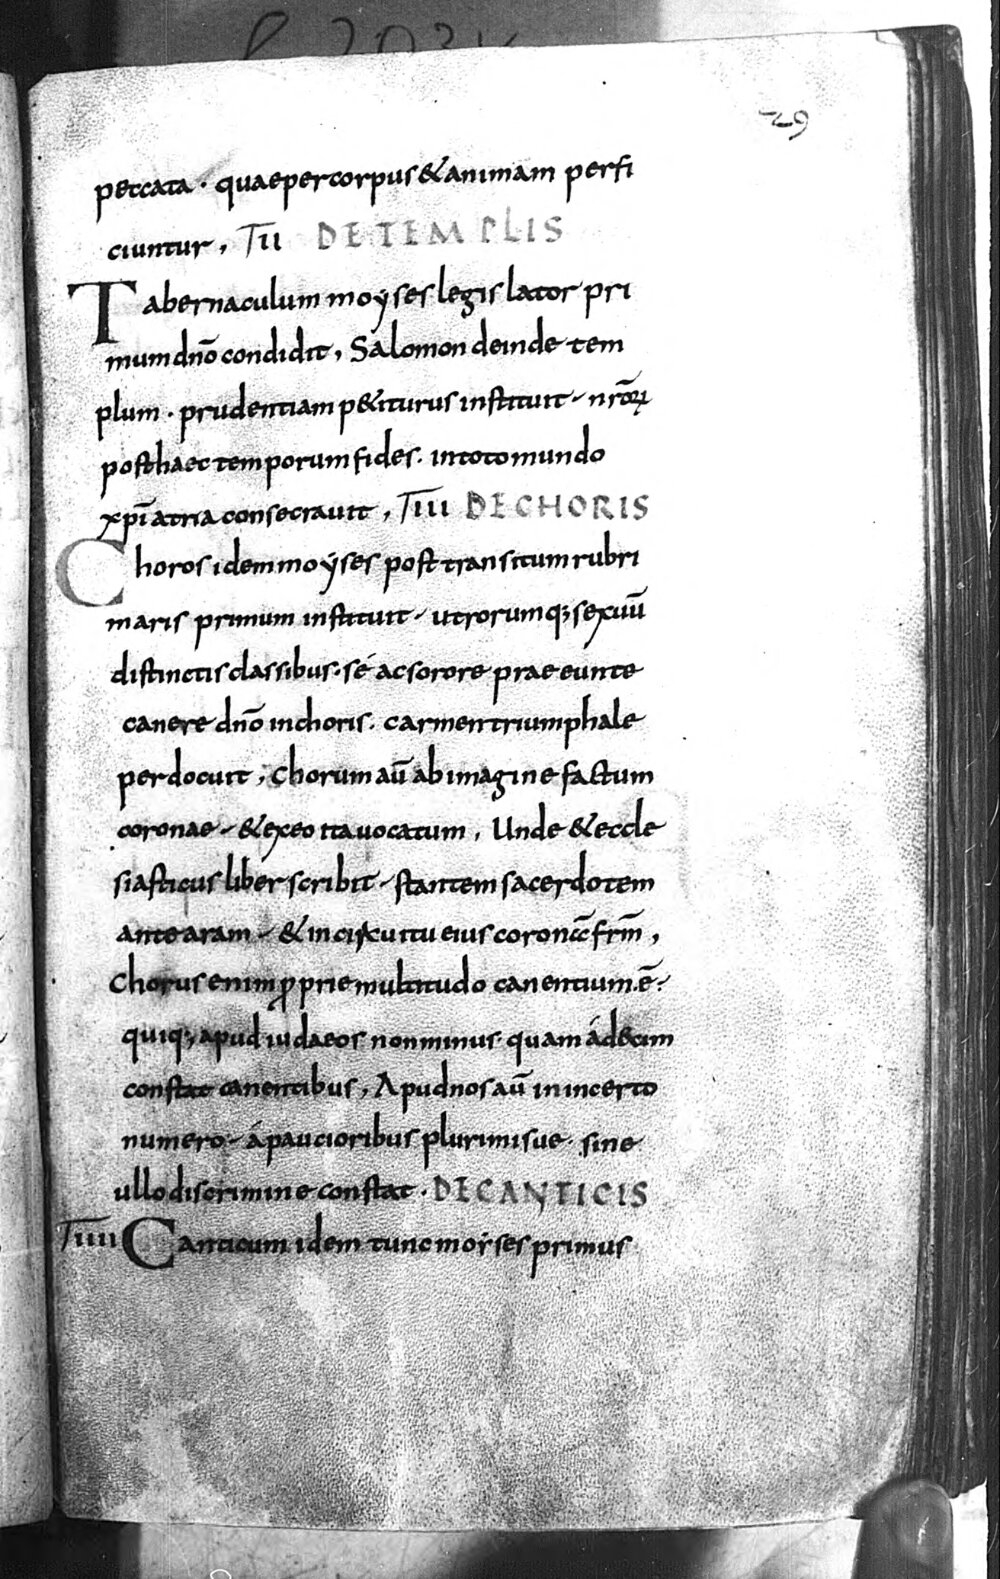 29
peccata · quae per corpus & animam perfi
ciuntur , Tii DE TEMPLIS
Tabernaculum moÿses legis lator pri
mum dnō condidit , Salomon deinde tem
plum · prudentiam p&iturus instituit - nrōꝝ
post haec temporum fides · in toto mundo
xpī atria consecrauit , Tiii DE CHORIS
Choros idem moÿses post transitum rubri
maris primum instituit - utrorumq; sexuū
distinctis classibus · sé ac sorore prae eunte
canere dnō in choris · carmen triumphale
perdocuit , Chorum aū ab imagine factum
coronae - & ex eo ita uocatum , Unde & eccle
siasticus liber scribit - stantem sacerdotem
ante aram - & in circuitu eius corona frm̄ ,
Chorus enim ꝓprie multitudo canentium ē ·
quiq; apud iudaeos non minus quam á decim
constat canentibus , Apud nos aū in incerto
numero - á paucioribus plurimisue · sine
ullo discrimine constat · DE CANTICIS
Tiiii Canticum idem tunc moÿses primus